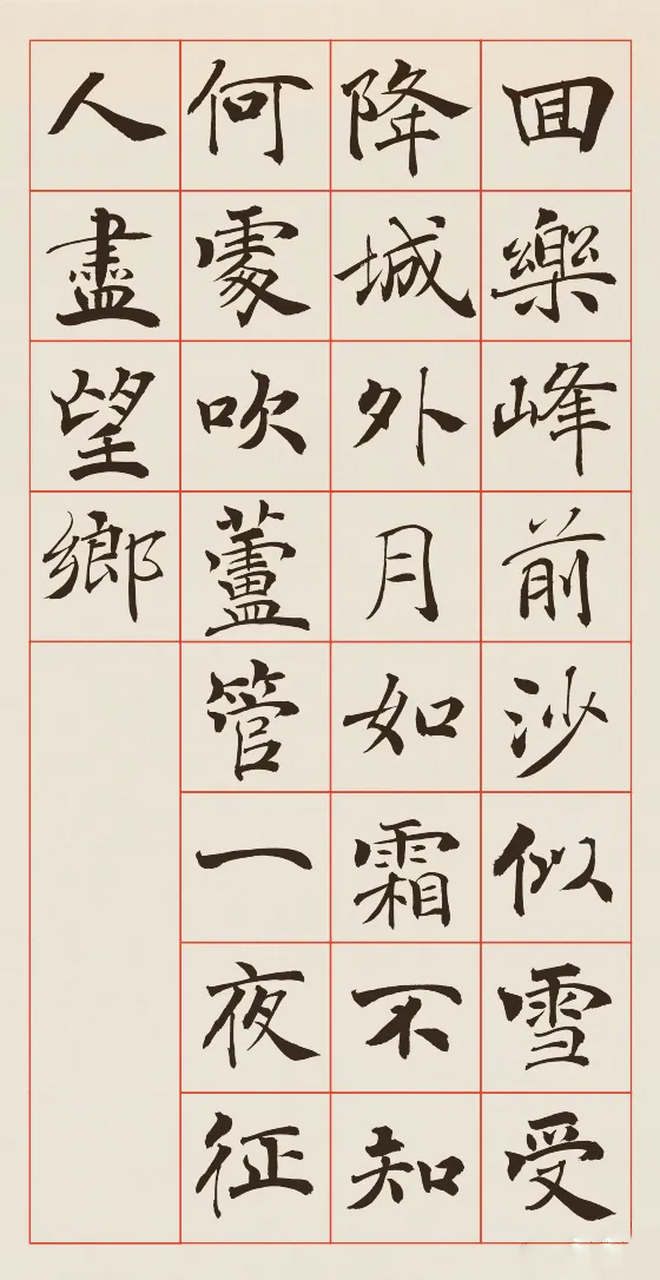 回樂峰前沙似雪受
降城外月如霜不知
何處吹蘆管一夜征
人盡望鄉